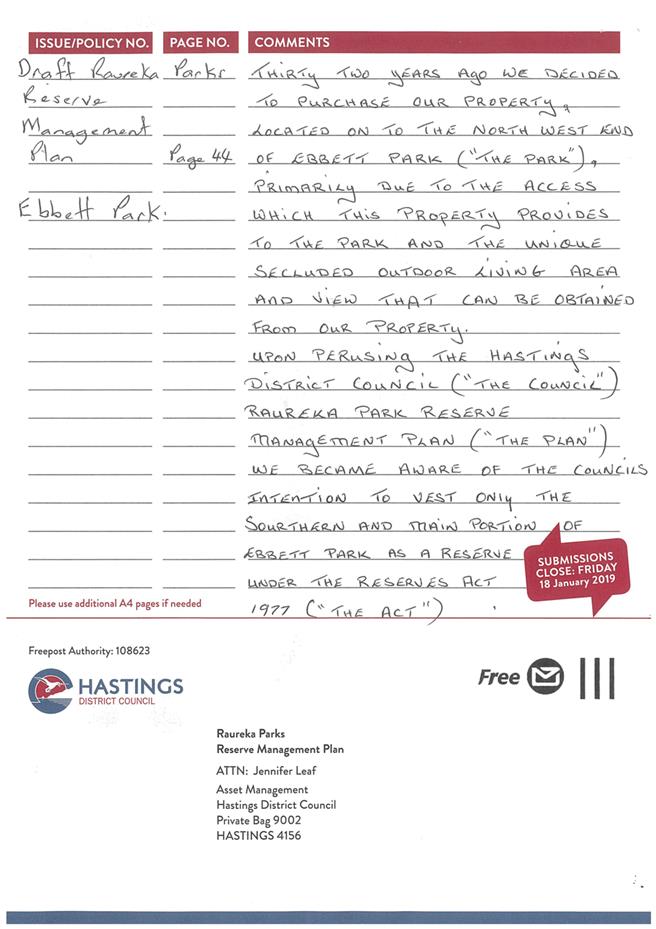 ISSUE/POLICY NO. PAGE NO. COMMENTS
Draft Raureka Parks THIRTY TWO YEARS AGO WE DECIDED
Reserve TO PURCHASE OUR PROPERTY,
Management LOCATED ON TO THE NORTH WEST END
Plan Page 44 OF EBBETT PARK ("THE PARK"),
PRIMARILY DUE TO THE ACCESS
Ebbett Park. WHICH THIS PROPERTY PROVIDES
TO THE PARK AND THE UNIQUE
SECLUDED OUTDOOR LIVING AREA
AND VIEW THAT CAN BE OBTAINED
FROM OUR PROPERTY.
UPON PERUSING THE HASTINGS
DISTRICT COUNCIL ("THE COUNCIL")
RAUREKA PARK RESERVE
MANAGEMENT PLAN ("THE PLAN")
WE BECAME AWARE OF THE COUNCILS
INTENTION TO VEST ONLY THE
SOURTHERN AND MAIN PORTION OF
EBBETT PARK AS A RESERVE
UNDER THE RESERVES ACT
1977 ("THE ACT")
SUBMISSIONS
CLOSE: FRIDAY
18 January 2019
Please use additional A4 pages if needed
Freepost Authority: 108623
HASTINGS
DISTRICT COUNCIL
Free
Raureka Parks
Reserve Management Plan
ATTN: Jennifer Leaf
Asset Management
Hastings District Council
Private Bag 9002
HASTINGS 4156